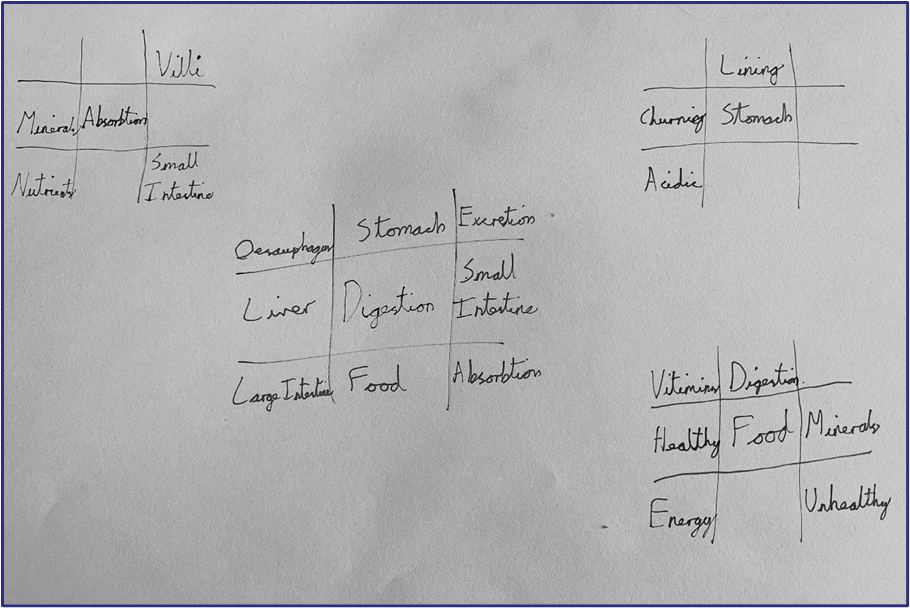 Villi
Minerals Absorbtion
Nutrients Small
Intestine
Lining
Churning Stomach
Acidic
Oesauphagus Stomach Excretion
Liver Digestion Small
Intestine
Large Intestine Food Absorbtion
Vitimins Digestion
Healthy Food Minerals
Energy Unhealthy